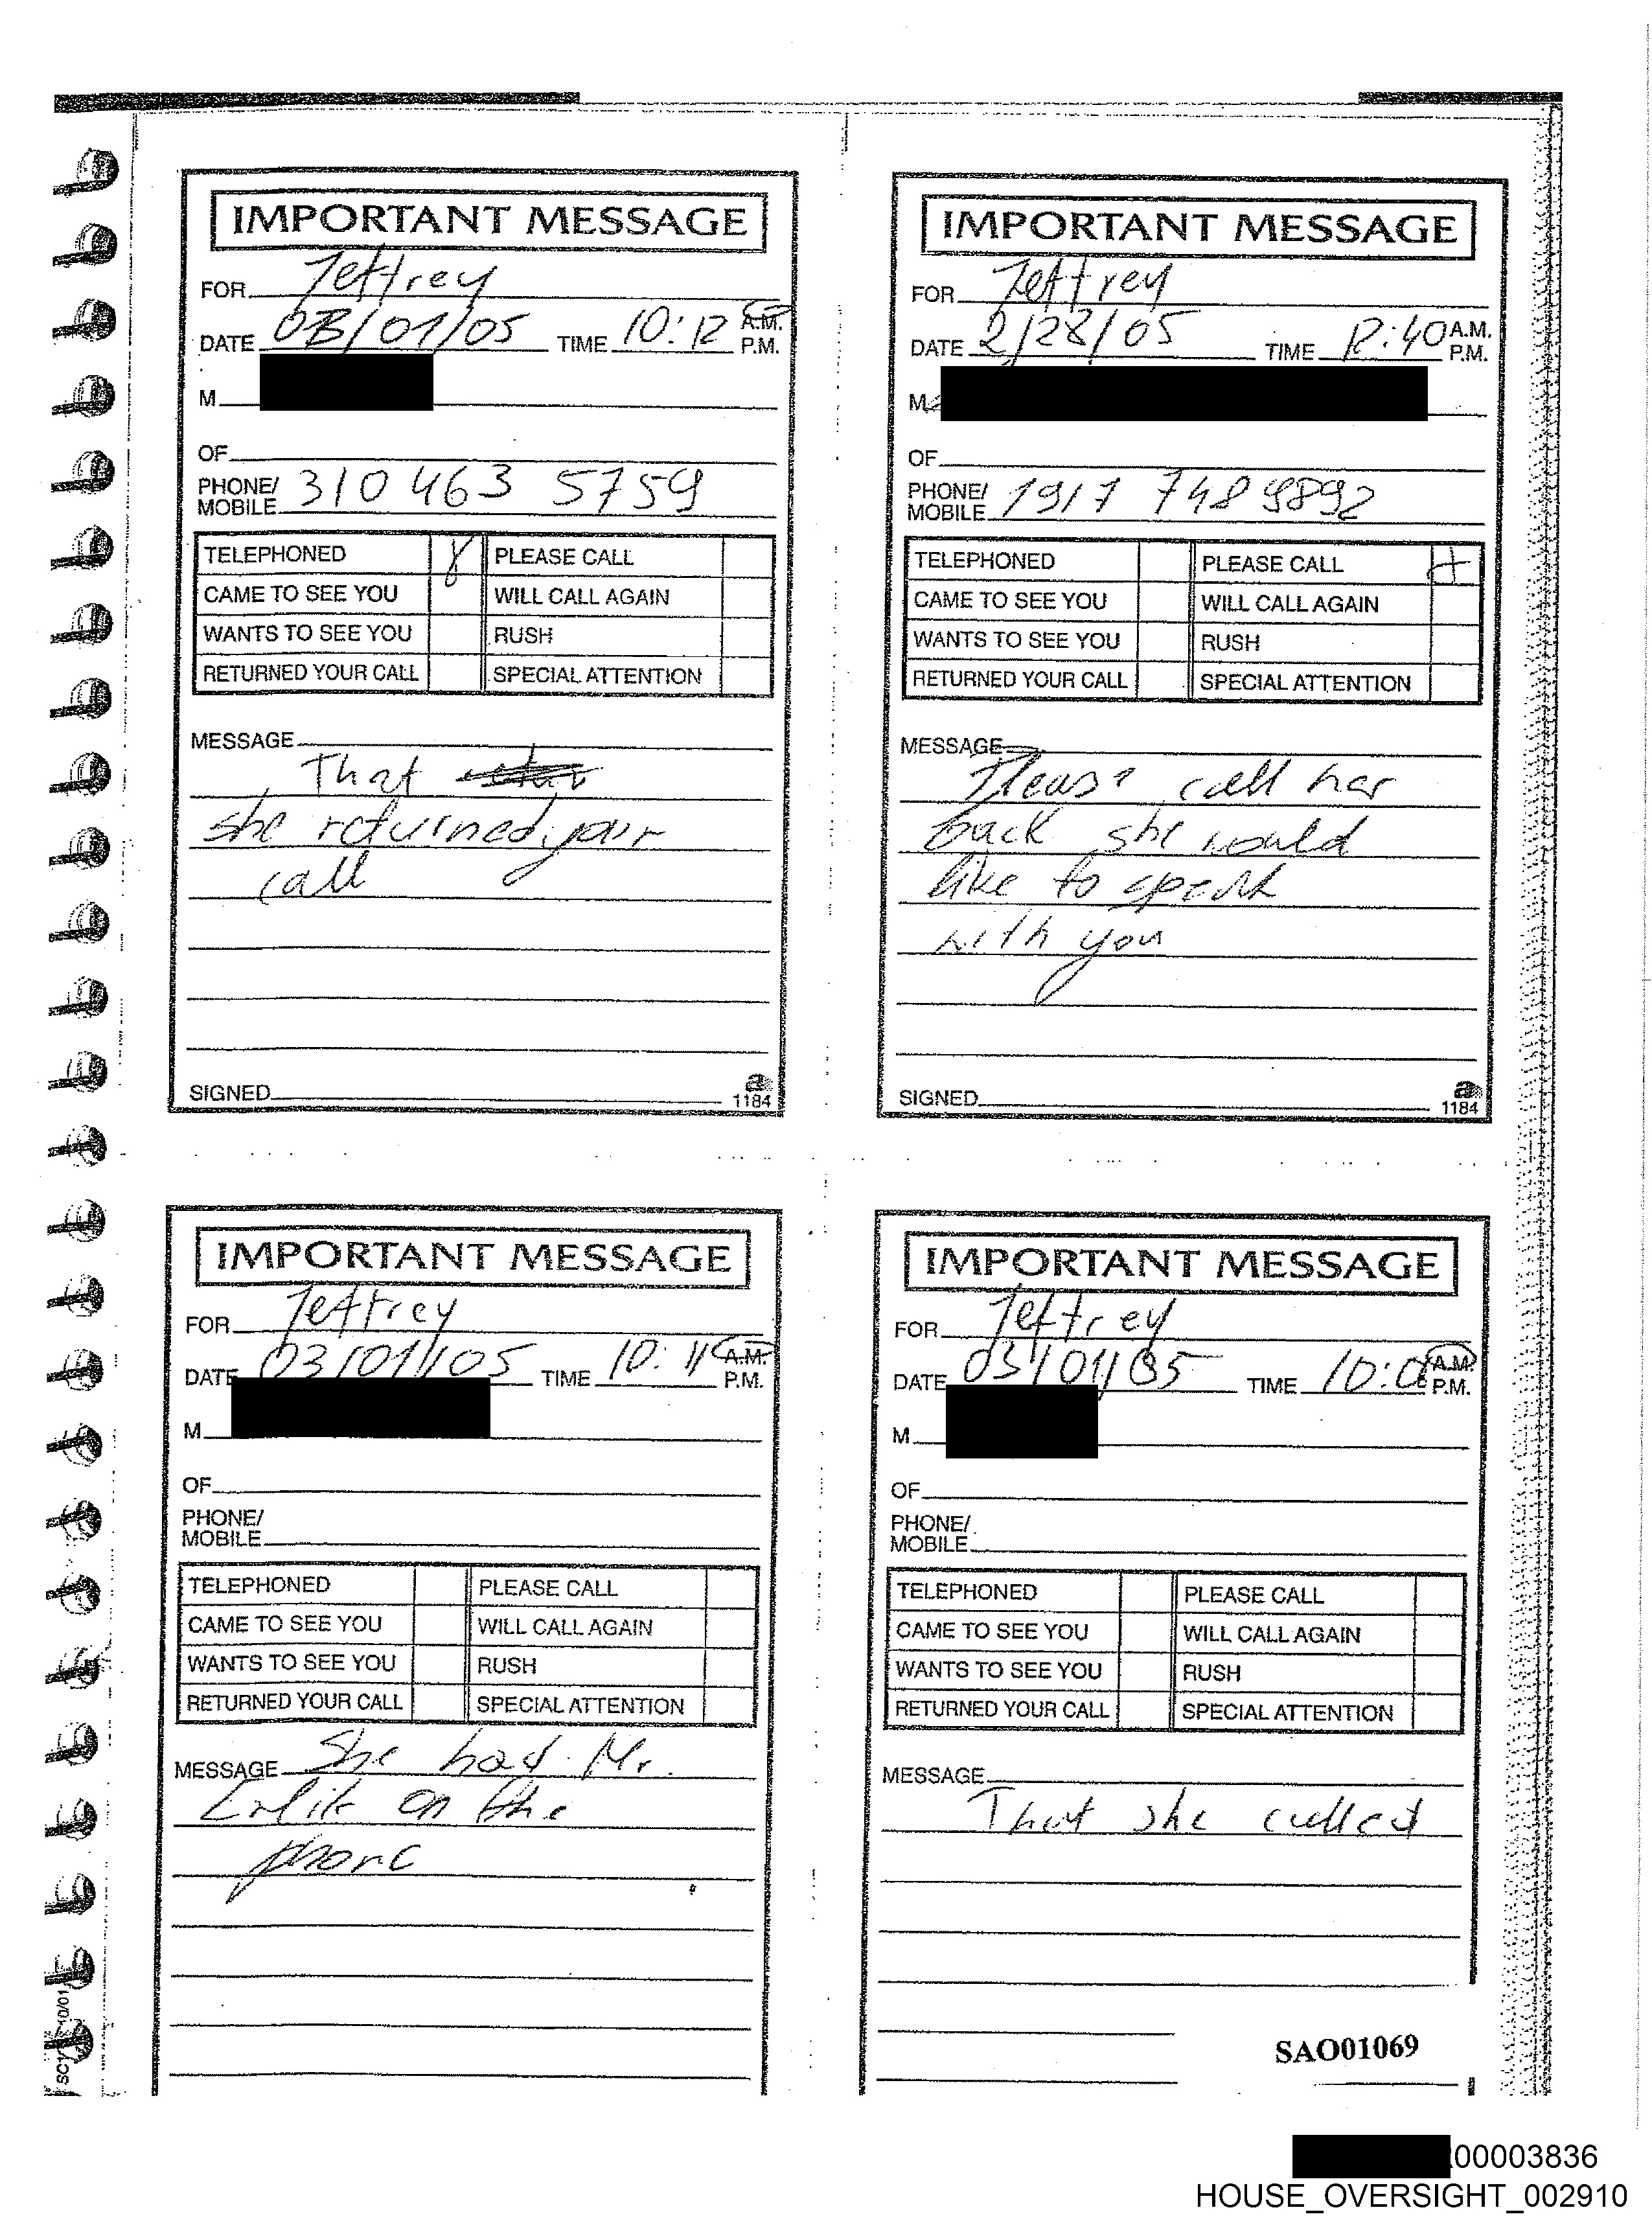 IMPORTANT MESSAGE
FOR Jeffrey
DATE 03/01/05 TIME 10:12 A.M.
P.M.
M
OF
PHONE/
MOBILE 310 463 5759
TELEPHONED PLEASE CALL
CAME TO SEE YOU WILL CALL AGAIN
WANTS TO SEE YOU RUSH
RETURNED YOUR CALL SPECIAL ATTENTION
MESSAGE
That
she returned your
call
SIGNED
a
1184
IMPORTANT MESSAGE
FOR Jeffrey
DATE 2/28/05 TIME 12:40 A.M.
P.M.
M
OF
PHONE/
MOBILE 1917 748 9892
TELEPHONED PLEASE CALL
CAME TO SEE YOU WILL CALL AGAIN
WANTS TO SEE YOU RUSH
RETURNED YOUR CALL SPECIAL ATTENTION
MESSAGE
Please call her
back she would
like to speak
with you
SIGNED
a
1184
IMPORTANT MESSAGE
FOR Jeffrey
DATE 03/01/05 TIME 10:11 A.M.
P.M.
M
OF
PHONE/
MOBILE
TELEPHONED PLEASE CALL
CAME TO SEE YOU WILL CALL AGAIN
WANTS TO SEE YOU RUSH
RETURNED YOUR CALL SPECIAL ATTENTION
MESSAGE She had Mr.
on the
phone
IMPORTANT MESSAGE
FOR Jeffrey
DATE 03/01/05 TIME A.M.
P.M.
M
OF
PHONE/
MOBILE
TELEPHONED PLEASE CALL
CAME TO SEE YOU WILL CALL AGAIN
WANTS TO SEE YOU RUSH
RETURNED YOUR CALL SPECIAL ATTENTION
MESSAGE
That she called
SAO01069
00003836
HOUSE_OVERSIGHT_002910